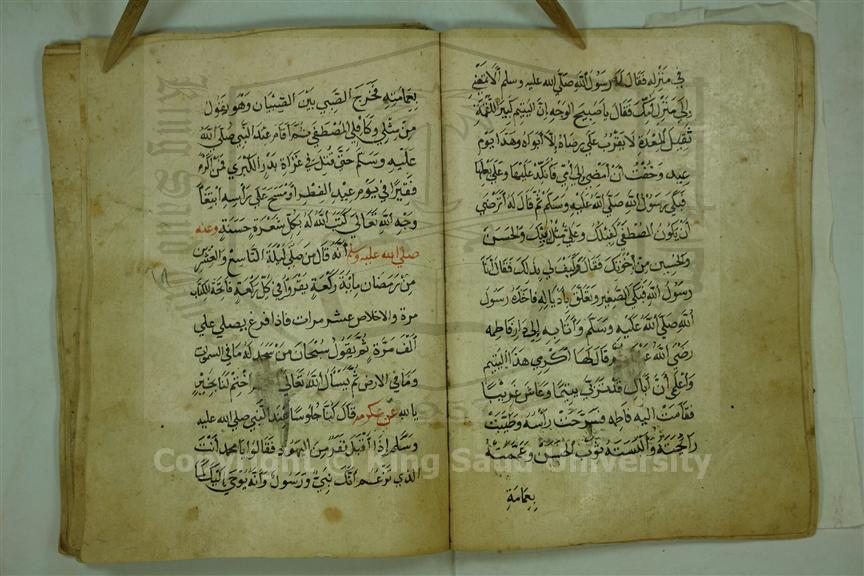 في منزله فقال له رسول الله صلي الله عليه وسلم ألا تمضي
إلي منزل أبيك فقال يا صبيح الوجه إن اليتيم كبير اللقمة
ثقيل المعدة لا يقرب علي رضاه إلا أبواه وهذا يوم
عيد وخفت أن أمضي إلي أمي فأنكد عليها وعلي بعلها
فبكي رسول الله صلي الله عليه وسلم ثم قال له أترضي
أن يكون المصطفي كفيلك وعلي
والحسين من إخوتك فقال وكيف لي بذلك فقال أنا
رسول الله فبكي الصغير وتعلق بأذياله فأخذه رسول
الله صلي الله عليه وسلم وأتا به إلي دار فاطمه
رضي الله عنها وقال لها أكرمي هذا اليتيم
وأعلمي أن أباك قد تربي يتيما وعاش غريبا
فقامت اليه فاطمه فسرحت رأسه وطيبت
رائحته وألبسته ثوب الحسن وعممته
بعمامة
بعمامته فخرج الصبي بين الصبيان وهو يقول
من مثلي وكافلي المصطفي ثم أقام عند النبي صلي الله
عليه وسلم حتي قتل في غزاة بدر الكبري فمن أكرم
فقيرا في يوم عيد الفطر أو مسح علي رأسه ابتغا
وجه الله تعالي كتب الله له بكل شعرة حسنه وعنه
صلي الله عليه وسلم أنه قال من صلي ليلة التاسع والعشرين
من رمضان مائة ركعة يقرؤا في كل ركعة فاتحة الكتاب
مرة والاخلاص عشر مرات فاذا فرغ يصلي علي
ألف مرة ثم يقول سبحان من سجد له ما في السموات
وما في الارض ثم يسأل الله تعالي اختم لنا بخير
يا الله عن عكرمه قال كنا جلوسا عند النبي صلي الله عليه
وسلم إذا أقبل نفر من اليهود فقالوا يا محمد أنت
الذي تزعم أنك نبي ورسول وأنه يوحي إليك
Copyright © King Saud University